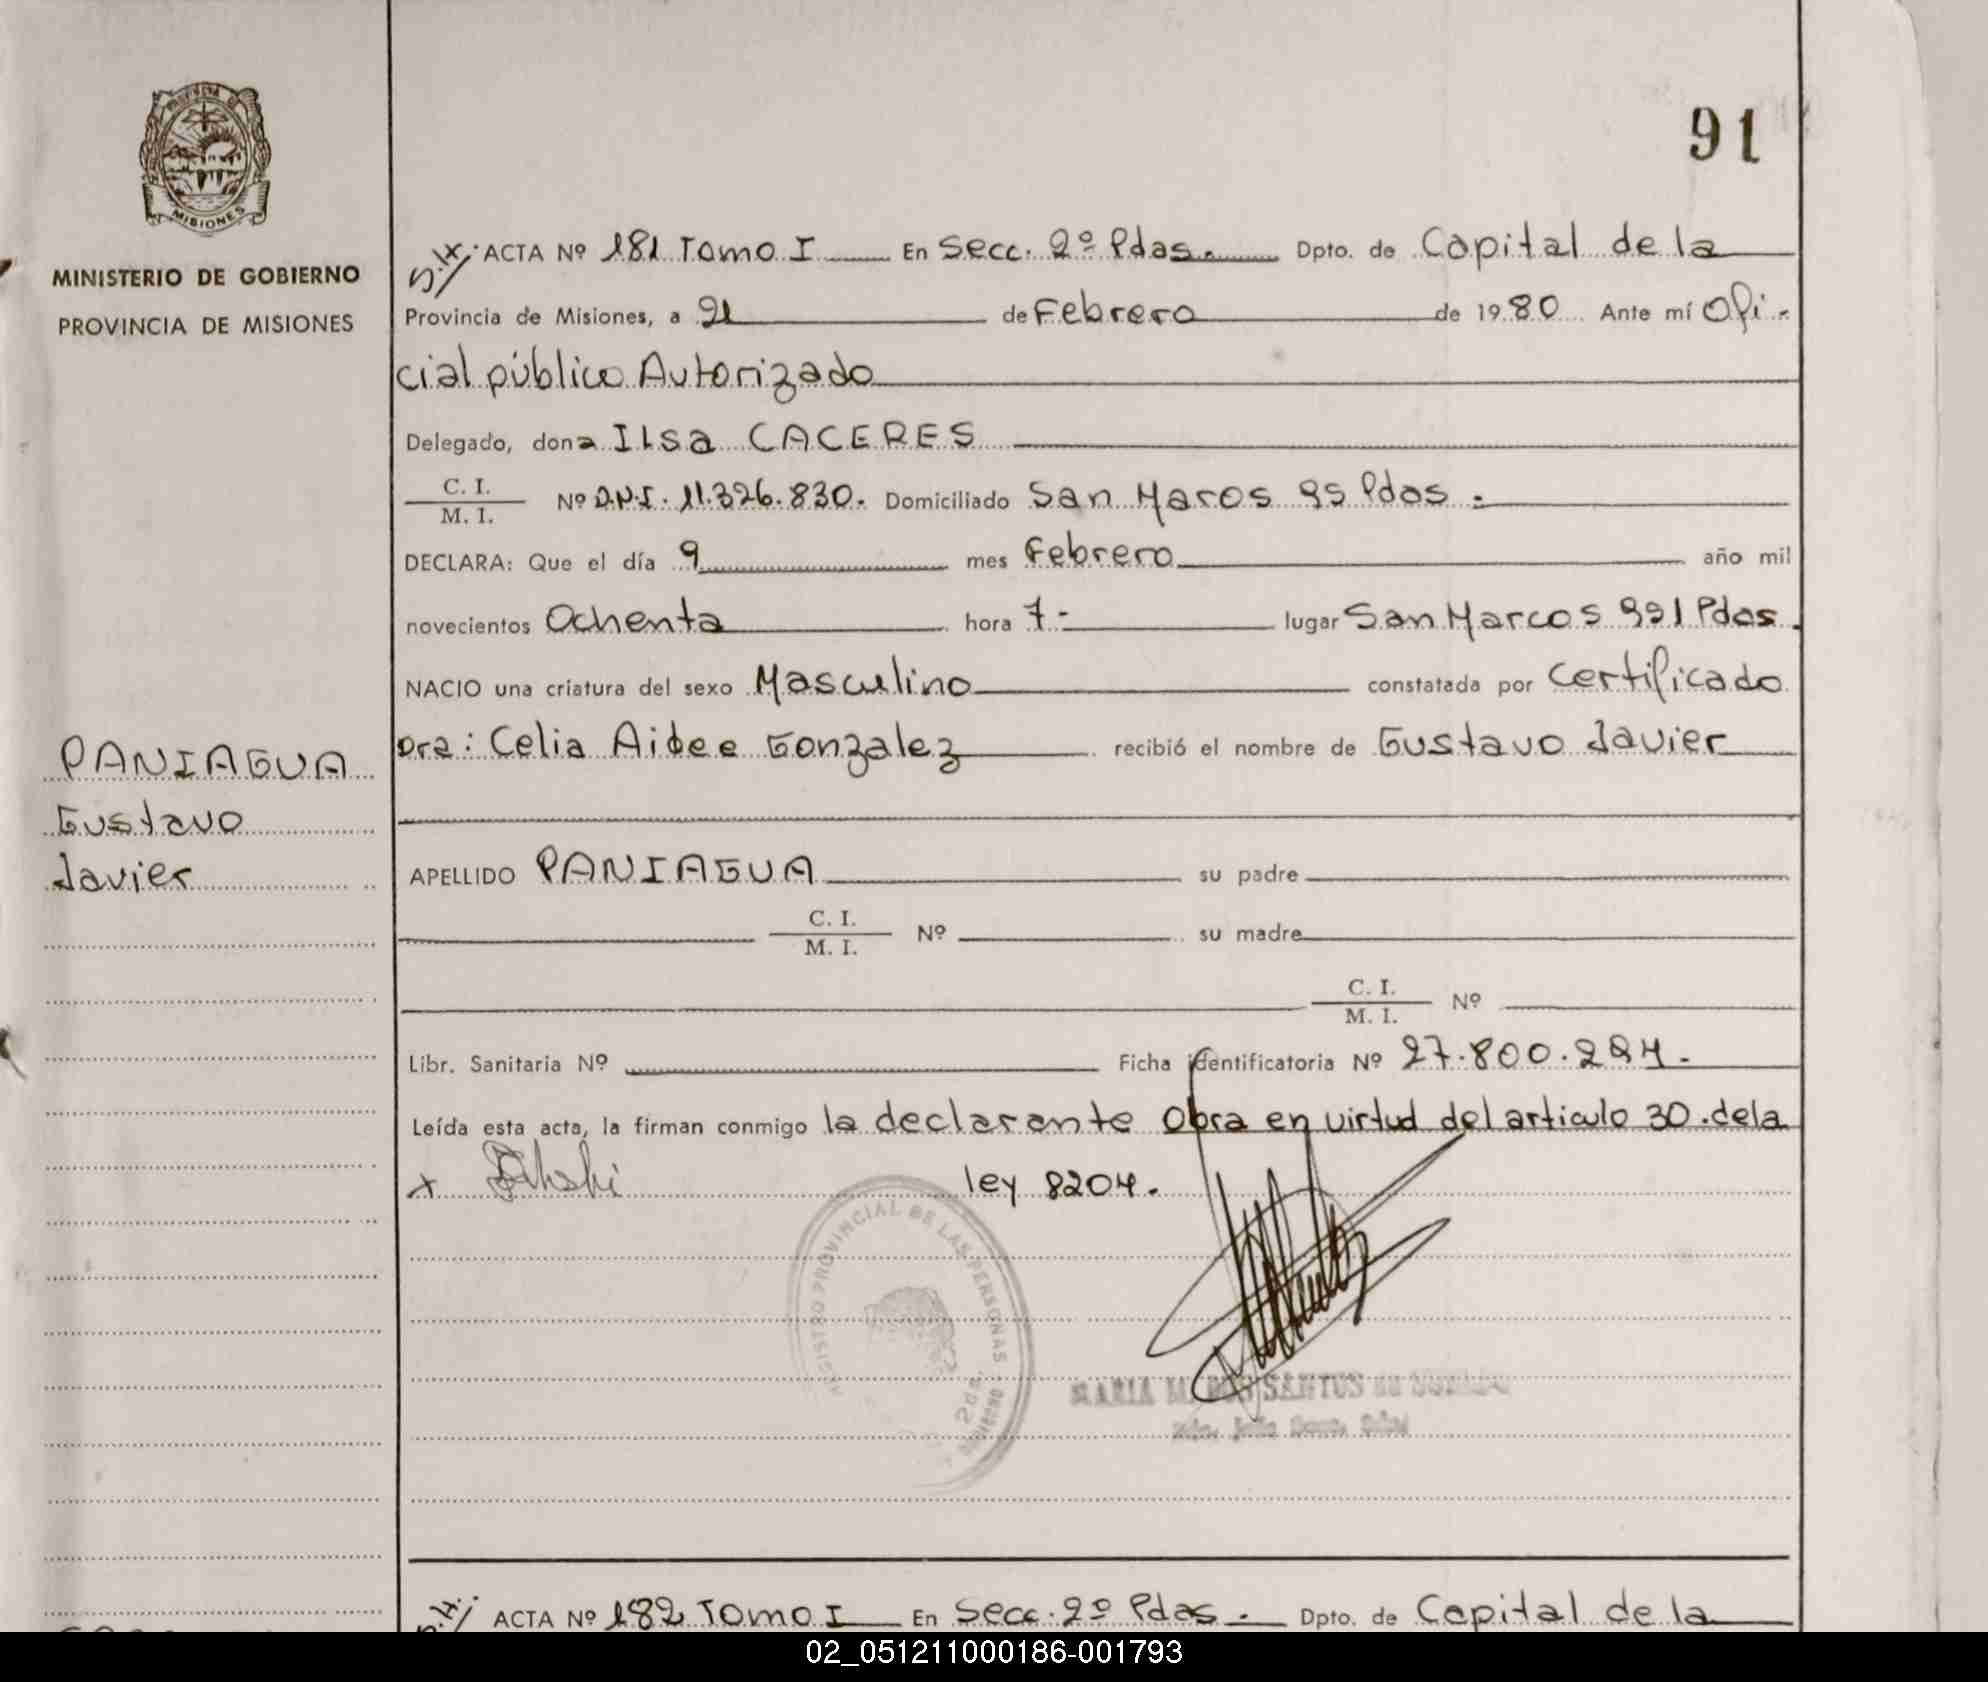 PROVINCIA DE
MISIONES
MINISTERIO DE GOBIERNO
PROVINCIA DE MISIONES
91
ACTA Nº 181 Tomo I En Secc. 2º Pdas. Dpto. de Capital de la
Provincia de Misiones, a 21 de Febrero de 1980 Ante mí Ofi-
cial público Autorizado
Delegado, dona Ilsa CACERES
C. I.
M. I. Nº D.N.I. 11.326.830. Domiciliado San Marcos 95 Pdas.
DECLARA: Que el día 9 mes Febrero año mil
novecientos Ochenta hora 7- lugar San Marcos 991 Pdas.
NACIO una criatura del sexo Masculino constatada por Certificado
Dra: Celia Aidee Gonzalez recibió el nombre de Gustavo Javier
PANIAGUA
Gustavo
Javier
APELLIDO PANIAGUA su padre
C. I.
M. I. Nº su madre
C. I.
M. I. Nº
Libr. Sanitaria Nº Ficha identificatoria Nº 27.800.224.
Leída esta acta, la firman conmigo la declarante Obra en virtud del articulo 30. de la
x ley 8204.
REGISTRO PROVINCIAL DE LAS PERSONAS
2da.
MARIA M. DOS SANTOS de
ACTA Nº 182 Tomo I En Secc. 2º Pdas. Dpto. de Capital de la
02_051211000186-001793